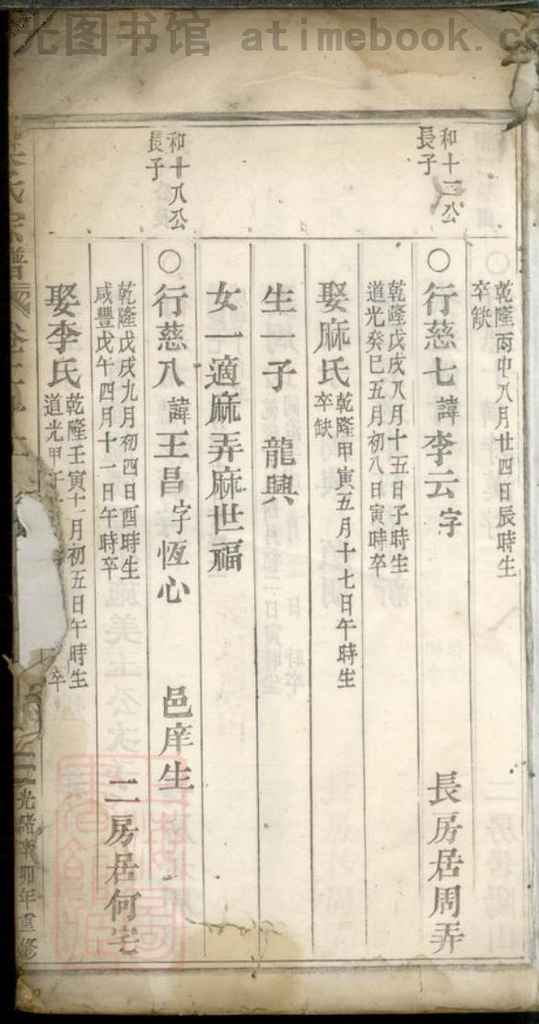 光图书馆 atimebook.co
乾隆丙申八月廿四日辰時生
卒缺
和十二公
長子
○行慈七 諱李云字 長房居周弄
乾隆戊戌八月十五日子時生
道光癸巳五月初八日寅時卒
娶麻氏 乾隆甲寅五月十七日午時生
卒缺
生一子 龍興
女一適麻弄麻世福
和十八公
長子
○行慈八 諱王昌字恆心 邑庠生
乾隆戊戌九月初四日酉時生
咸豐戊午四月十一日午時卒
二房居何宅
娶李氏 乾隆壬寅十一月初五日午時生
道光甲 卒
氏宗譜 卷
光緒 卯年重修